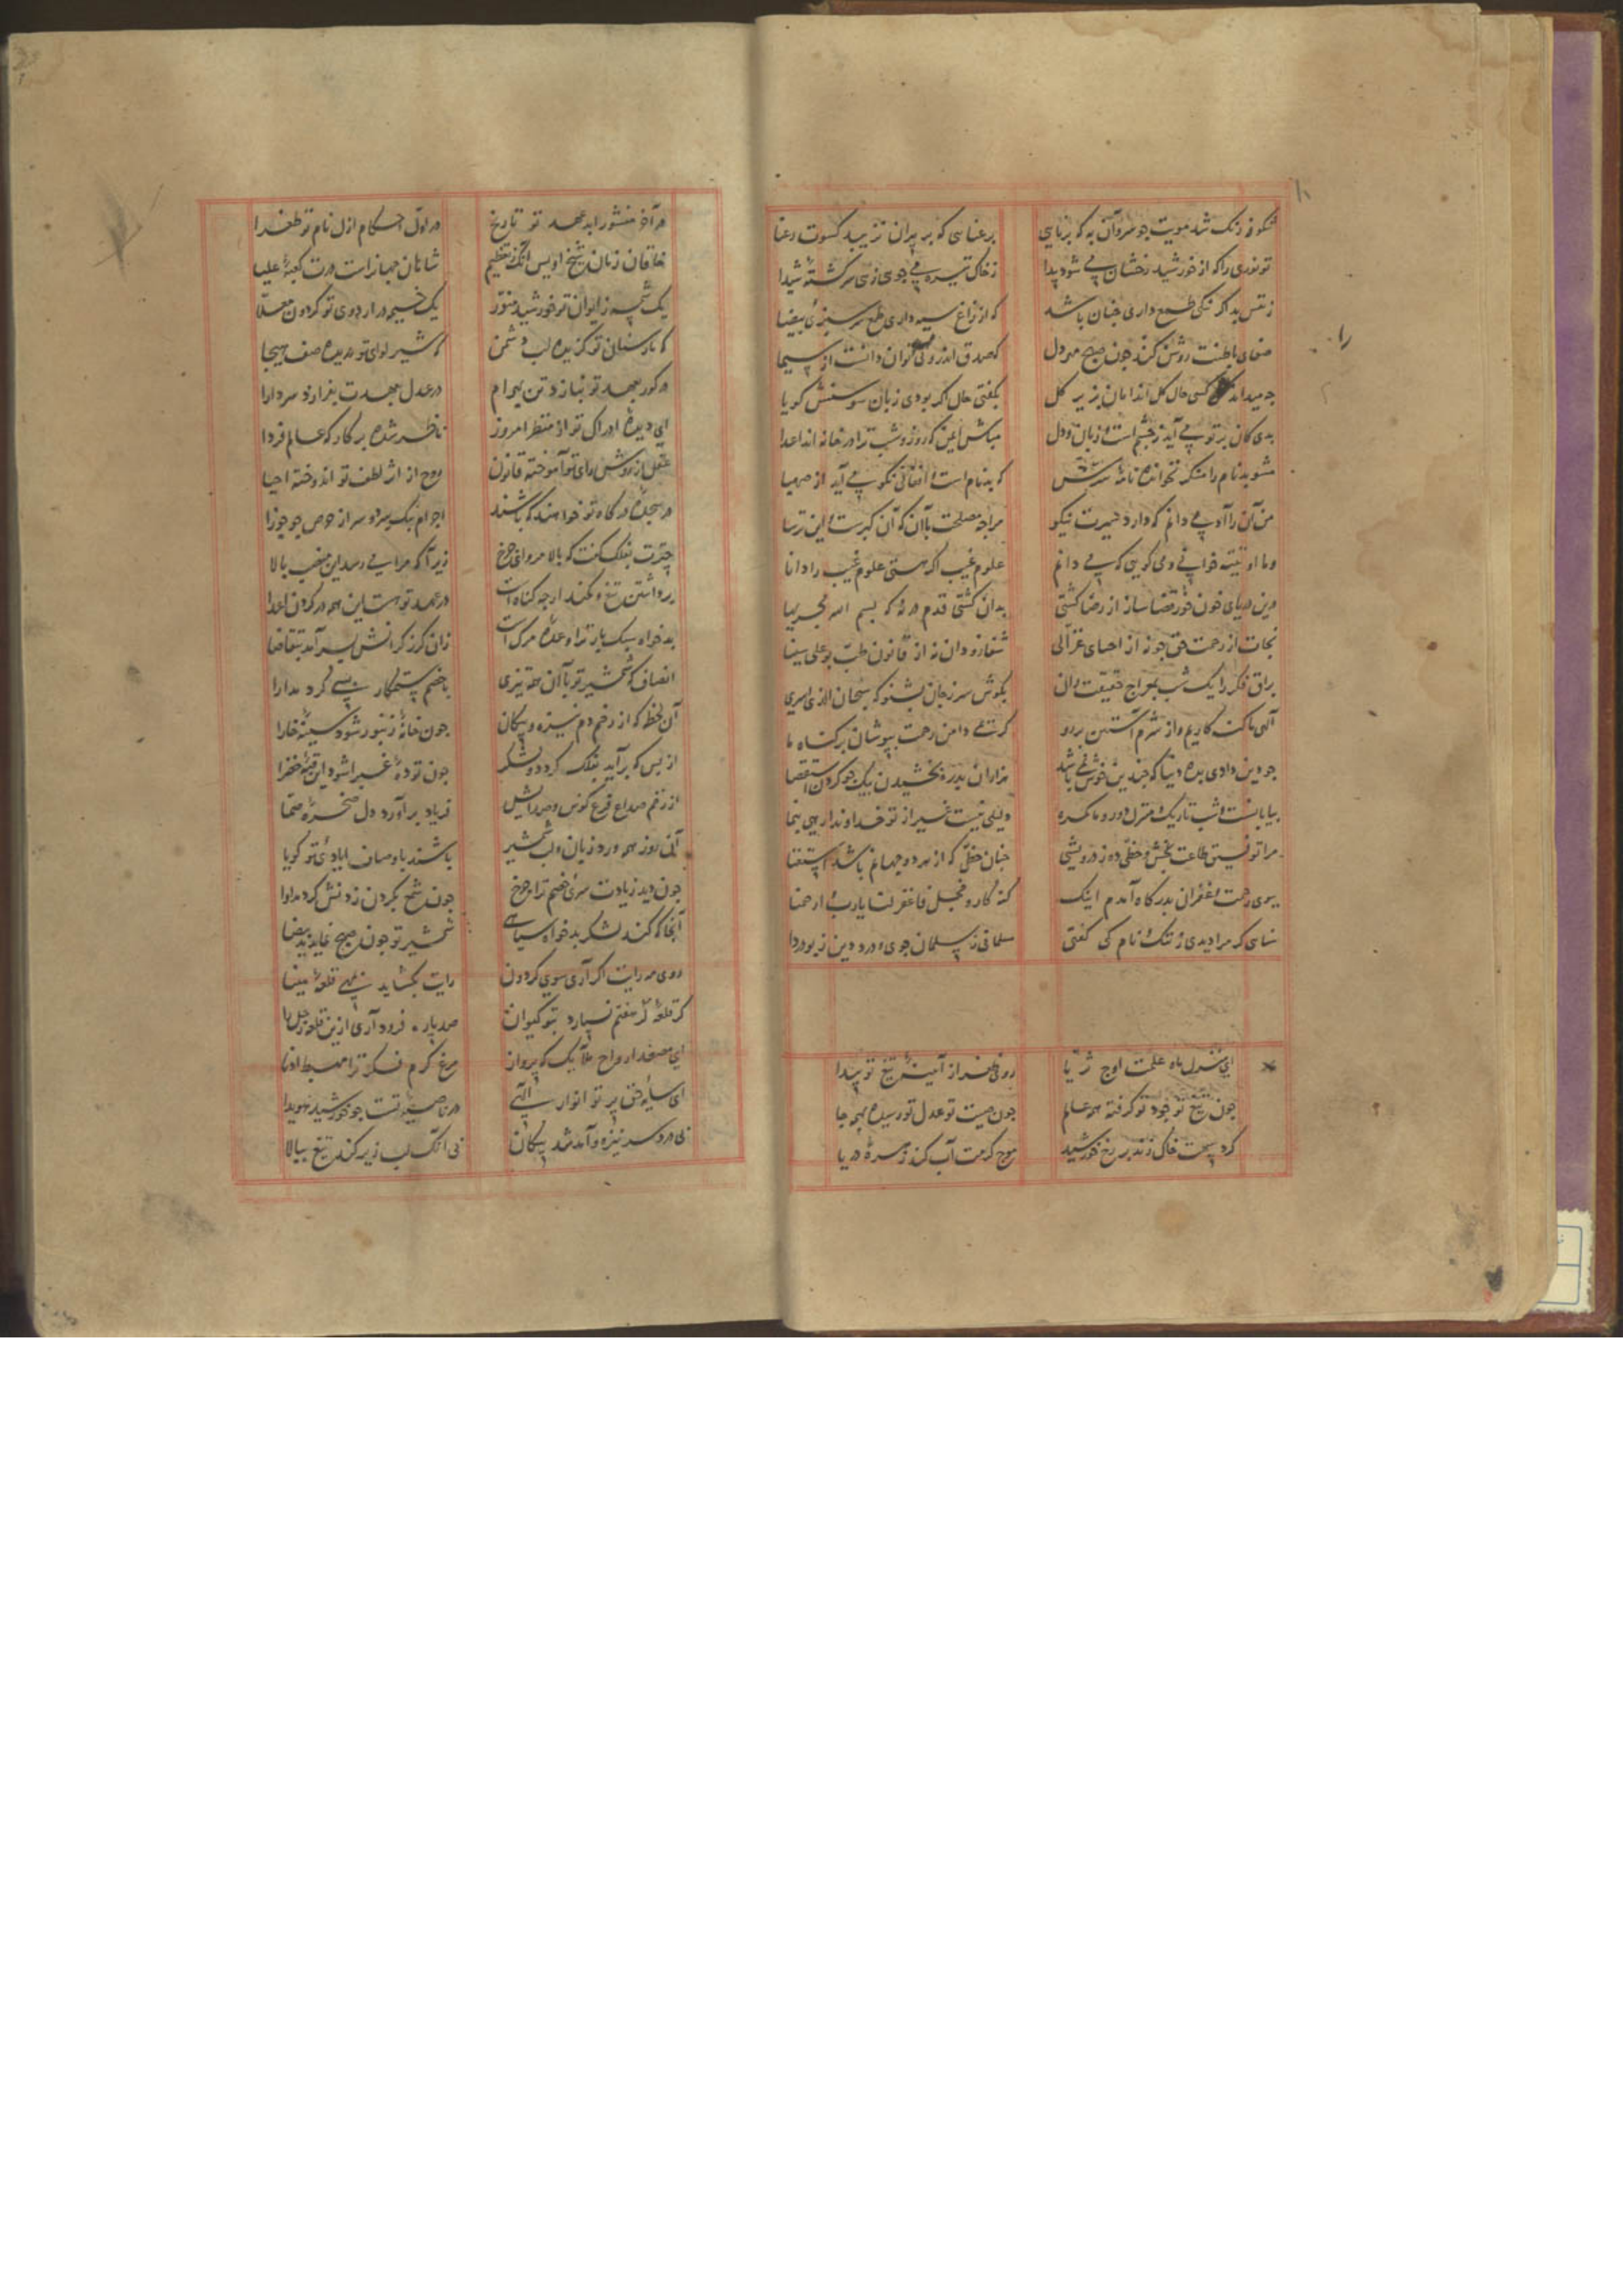 شکوفه رنگ شد مویت چو سرو آن به که برنایی برعنایی که بر پیران نزیبد کسوت رعنا
تو نوری را که از خورشید رخشان می شود پیدا ز خاک تیره می جوی زهی سرگشته شیدا
ز نفس بد اگر نیکی طمع داری چنان باشد که از زاغ سیه داری طمع سرسبزی بیضا
صفای باطنت روشن کند چون صبح مهر دل که صدق اندرونی می توان دانست از سیما
چه میداند کسی حال گل اندامان بزیر گل بگفتی حال اگر بودی زبان سوسنش گویا
بدی کان بر تو می آید ز چشم است و زبان و دل مباش ایمن که روز و شب ترا در خانه اند اعدا
مشو بدنام را منکر نخوانده نامه سرش که بدنام است و افعالی نکو می آید از صهبا
من آن را آدمی دانم که دارد سیرت نیکو مرا چه مصلحت با آن که آن گبرست و این ترسا
وما اوتیتم خوانی و می گویی که می دانم علوم غیب اگر هستی علوم غیب را دانا
درین دریای خون خور قضا ساز از رضا کشتی بدان کشتی قدم در نه که بسم الله مجریها
نجات از رحمت حق جو نه از احیای غزالی شفا زو دان نه از قانون طب بوعلی سینا
براق فکر را یک شب بمعراج حقیقت ران بگوش سر ز جان بشنو که سبحان الذی اسری
الهی ما گنه کاریم و از شرم آستین بر رو کرمی دامن رحمت بپوشان بر گناه ما
چو دین دادی بده دنیا که چندین خوش نمی باشد هزاران بدره بخشیدن بیک جو کردن استقصا
بیابانست و شب تاریک و منزل دور و ما گمره دلیلی نیست غیر از تو خداوندا رهی بنما
مرا توفیق طاعت بخش و حظی ده ز درویشی چنان حظی که از هر دو جهانم باشد استغنا
بسوی رحمت و غفران بدرگاه آمدم اینک گنه کار و خجل فاغفر لنا یا رب و ارحمنا
ثنای که مرا دیدی ز ننگ و نام کی گفتی مسلمانی ز سلمان جوی و درد دین ز بو دردا
ای منزل ماه علمت اوج ثریا روی ظفر از آینه تیغ تو پیدا
چون تیغ تو جود تو گرفته همه عالم چون صیت تو عدل تو رسیده بهمه جا
گرد سپهت خاک زند بر رخ خورشید موج کرمت آب کند زهره دریا
در آخر منشور ابد عهد تو تاریخ در اول احکام ازل نام تو طغرا
خاقان زمان شیخ اویس آنک ز تعظیم شاهان جهانراست درت کعبه علیا
یک شمسه ز ایوان تو خورشید منور یک خیمه در اردوی تو گردون معلا
که نار سنان تو گزیده لب دشمن که شیر لوای تو دریده صف هیجا
در گور بعهد تو بنازد تن بهرام در عدل بعهدت بفرازد سر دارا
ای دیده ادراک تو از منظر امروز ناظر شده بر کار که عالم فردا
عقل از روش رای تو آموخته قانون روح از اثر لطف تو اندوخته احیا
در سجده درگاه تو خواهند که باشند اجرام بیک پهلو و سر از حرص چو جوزا
چترت بفلک گفت که بالا مرو ای چرخ زیرا که مرا می رسد این منصب بالا
برداشتن تیغ و کمند ارچه گناه است در عهد تو هست این همه در گردن اعدا
بدخواه سبک بار ترا وعده مرگ است زان گرز گرانش بسر آمد بتقاضا
انصاف که شمشیر تو با آن همه تیزی با خصم ستمکار بسی کرد مدارا
آن لحظه که از زخم دم نیزه و پیکان چون خانه زنبور شود سینه خارا
از بس که برآید بفلک گرد دو لشکر چون توده غبرا شود این قبه خضرا
از زخم صداع قرع کوس و صدایش فریاد برآورد دل صخره صما
آنی روز همه ورد زبان و لب شمشیر باشند باوصاف ایادی تو گویا
چون دید زیادت سری خصم ترا چرخ چون شمع بگردن زدنش کرد مداوا
آنجا که کند لشکر بدخواه سیاهی شمشیر تو چون صبح نماید ید بیضا
روی مه رایت اگر آری سوی گردون رایت بگشاید بنهی قلعه مینا
گر قلعه هفتم نسپارد بتو کیوان صد پاره فرود آری ازین قلعه زحل را
ای مصعد ارواح ملایک که پرواز مرغ کرم فکر ترا مهبط ادنا
ای سایه حق پرتو انوار الهی در ناصیه تست چو خورشید هویدا
نی درد سر نیزه و آمد شد پیکان نی آنک لب زیر کند تیغ ببالا